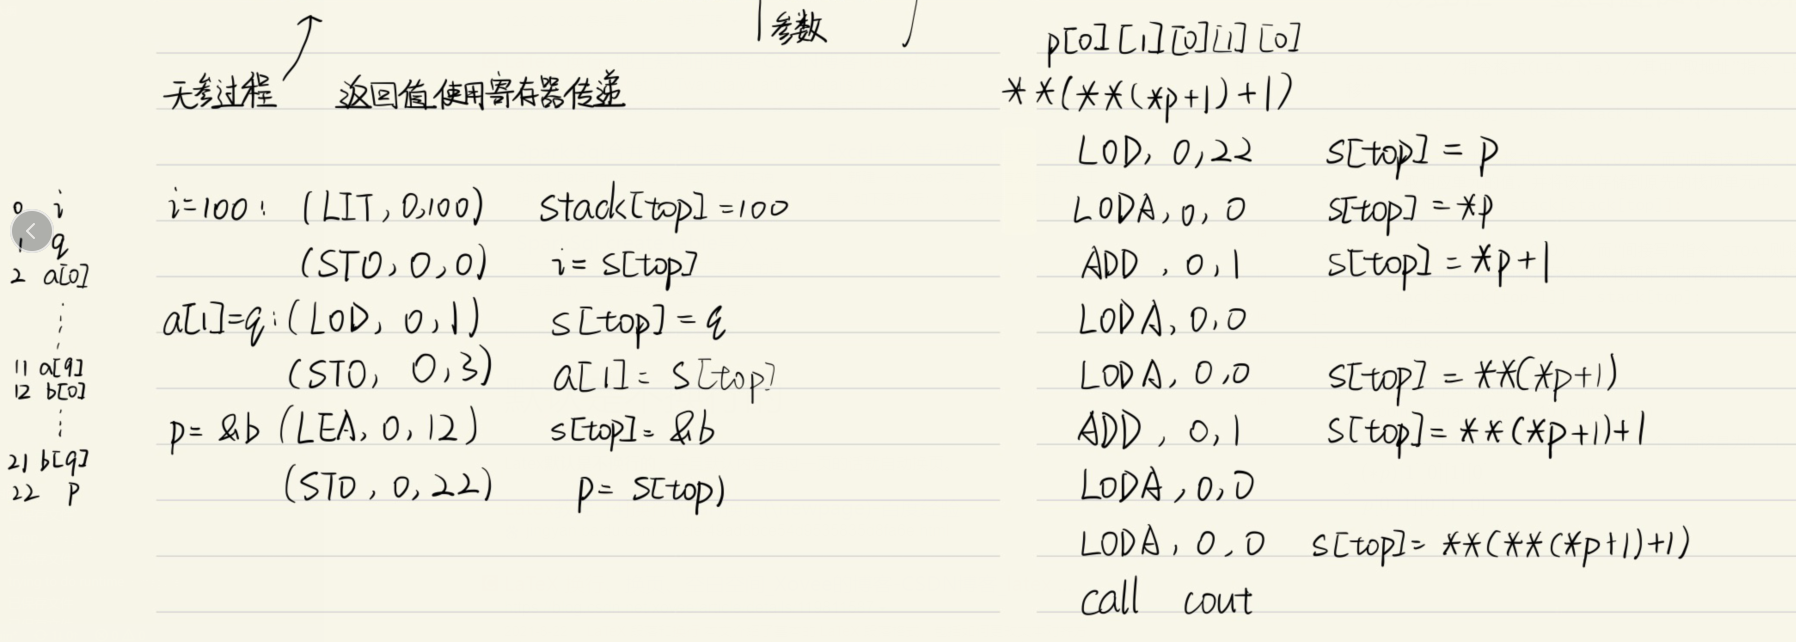 参数
无参过程 返回值使用寄存器传递
0 i
1 q
2 a[0]
⋮
11 a[9]
12 b[0]
⋮
21 b[9]
22 p
i=100: (LIT, 0,100) stack[top]=100
(STO, 0, 0) i= s[top]
a[1]=q: (LOD, 0, 1) s[top] = q
(STO, 0, 3) a[1] = s[top]
p= &b (LEA, 0, 12) s[top]= &b
(STO, 0, 22) p= s[top]
p[0][1][0][1][0]
**(**(*p+1)+1)
LOD, 0, 22 s[top] = p
LODA, 0, 0 s[top] = *p
ADD, 0, 1 s[top] = *p+1
LODA, 0, 0
LODA, 0, 0 s[top] = **(*p+1)
ADD, 0, 1 s[top]= **(*p+1)+1
LODA, 0, 0
LODA, 0, 0 s[top]= **(**(*p+1)+1)
call cout